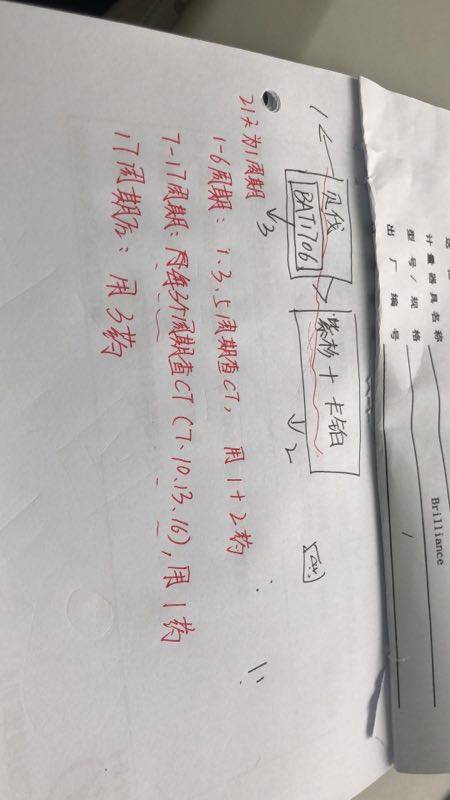 贝伐
BAT1706
紫杉 + 卡铂
1
3
2
21天为1周期
1-6周期：1.3.5周期查CT，用1+2药
7-17周期：每3个周期查CT（7、10、13、16），用1药
17周期后：用3药
计量器具名称
型号/规格
出厂编号
Brilliance
/